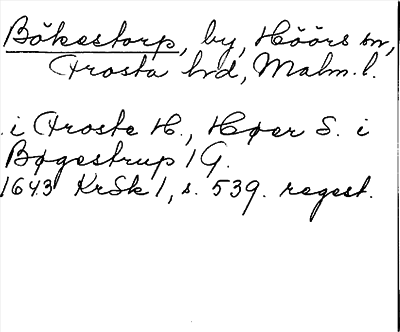 Bökestorp, by, Höörs sn,
Frosta hd, Malm. l.
i Froste H., Høer S. i
Bøgestrup 1 G.
1643 KrSk 1, s. 539. regest.